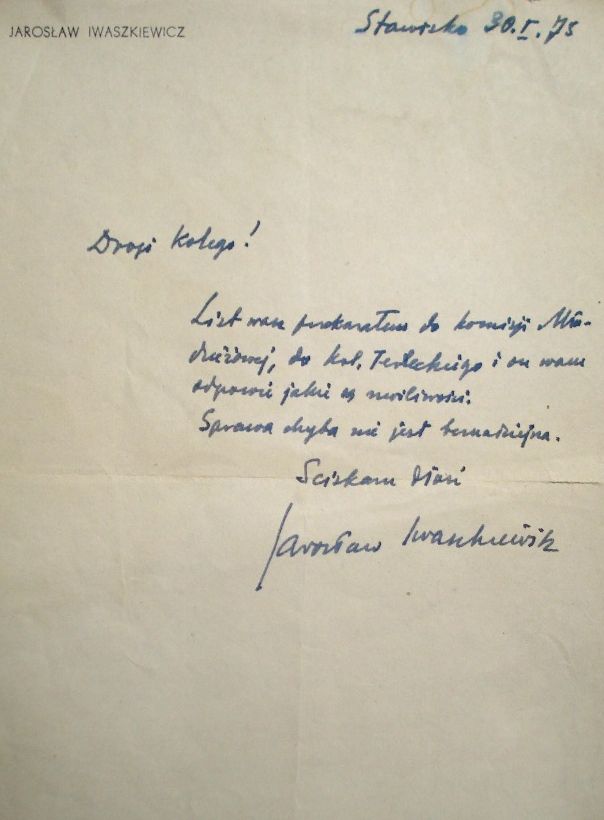 JAROSŁAW IWASZKIEWICZ
Stawisko 30.I.75
Drogi Kolego!
List wasz przekazałem do komisji Mło-
dzieżowej, do kol. Terleckiego i on wam
odpowie jakie są możliwości.
Sprawa chyba nie jest beznadziejna.
Sciskam dłoń
Jarosław Iwaszkiewicz